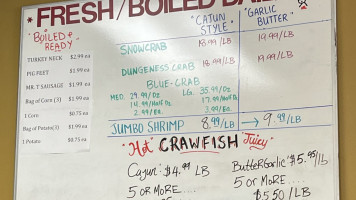 * FRESH/BOILED
"BOILED & READY
TURKEY NECK $2.99 ea
PIG FEET $1.99 ea
MR. T SAUSAGE $1.99 ea
Bag of Corn (3) $1.99 ea
1 Corn $0.75 ea
Bag of Potato(3) $1.99 ea
1 Potato $0.75 ea
"CAJUN STYLE"
"GARLIC BUTTER"
SNOWCRAB 18.99/LB 19.99/LB
DUNGENESS CRAB 18.99/LB 19.99/LB
BLUE-CRAB
MED. 29.99/Dz LG. 35.99/Dz
14.99/HALF Dz 17.99/HALF Dz
2.99/Ea. 3.99/Ea.
JUMBO SHRIMP 8.99/LB → 9.99/LB
"Hot" CRAWFISH "Juicy"
Cajun $4.99 LB
5 OR MORE....
Butter Garlic $5.95/lb
5 OR MORE....
$5.50 /LB